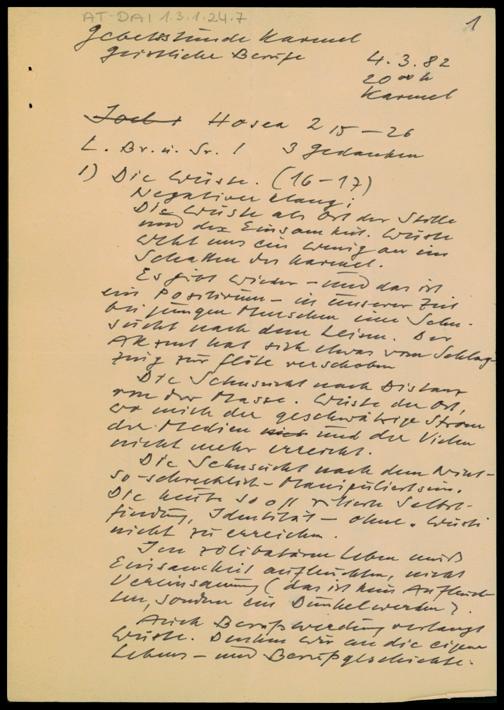 AT-DAI 1.3.1.24.7
1
Gebetsstunde Karmel
Geistliche Berufe
4.3.82
20 00 h
Karmel
Hosea 2 15-26
L. Br. u. Sr.! 3 Gedanken
1) Die Wüste. (16-17)
Negativer Klang;
Die Wüste als Ort der Stille
und der Einsamkeit. Wüste
weht uns ein wenig an im
Schatten des Karmel.
Es gibt wieder - und das ist
ein Positivum - in unserer Zeit
bei jungen Menschen eine Sehn-
sucht nach dem Leisen. Der
Akzent hat sich etwas vom Schlag-
zeug zur Flöte verschoben
Die Sehnsucht nach Distanz
von der Masse. Wüste der Ort,
wo mich der geschwätzige Strom
der Medien und der Vielen
nicht mehr erreicht.
Die Sehnsucht nach dem Nicht-
so-schrecklich-Manipuliertsein.
Die heute so oft zitierte Selbst-
findung, Identität - ohne Wüste
nicht zu erreichen.
Im zölibatären Leben muß
Einsamkeit aufleuchten, nicht
Vereinsamung (das ist kein Aufleuch-
ten, sondern ein Dunkelwerden).
Auch Berufswerdung verlangt
Wüste. Denken wir an die eigene
Lebens- und Berufsgeschichte.